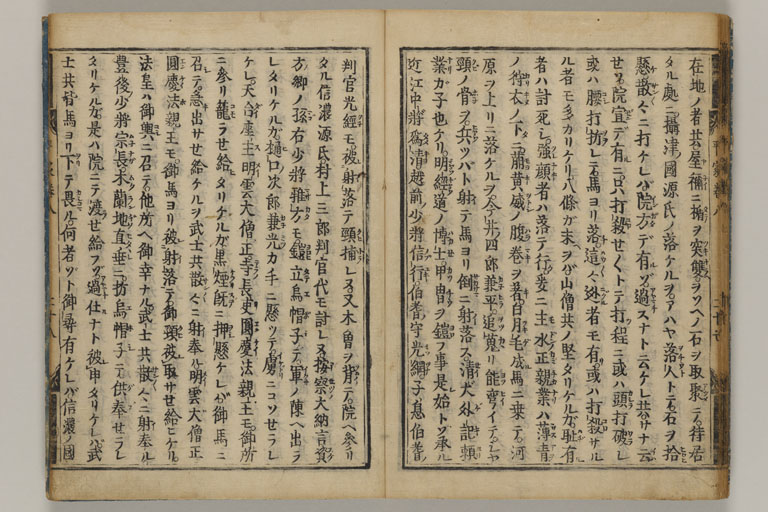 在地ノ者共屋禰ニ楯ヲ突襲ヲソヘノ石ヲ取聚テ待居
タル處ニ攝津國源氏ノ落ケルヲアハヤ落人トテ石ヲ拾
懸散々ニ打ケレバ院方デ有ゾ過スナト云ケレ共サナ云
セソ院宣デ有ニ只打殺セ〱トテ打程ニ或ハ頭打破レ
或ハ腰打折レテ馬ヨリ落這々迯者モ有或ハ打殺サル
ル者モ多カリケリ八條ガ末ヲバ山僧共ノ堅タリケルガ耻有
者ハ討死シ強顔者ハ落テ行爰ニ主水正親業ハ薄青
ノ狩衣ノ下ニ萠黄威ノ腹巻ヲ著白月毛ノ成馬ニ乗テ河
原ヲ上リニ落ケルヲ今井四郎兼平追蒐リ能彎イテシヤ
頸ノ骨ヲ兵ツバト射テ馬ヨリ倒ニ射落ス清大外記頼
業ガ子也ケリ明經道ノ博士甲冑ヲ鎧フ事是始トゾ承ル
近江中將爲清越前少將信行伯耆守光綱子息伯耆
判官光經モ被射落テ頸捕レヌ又木曽ヲ背テ院ヘ參リ
タル信濃源氏村上三郎判官代モ討レヌ按察大納言資
方卿ノ孫右少將雅方モ鎧立烏帽子デ軍ノ陳ヘ出ラ
レタリケルガ樋口次郎兼光カ手ニ懸ツテ虜ニコソせラレ
ケレ天台座主明雲大僧正寺長吏圓慶法親王モ御所
ニ參リ籠ラせ給タリケルガ黒煙既ニ押懸ケレバ御馬ニ
召テ急出サせ給ケルヲ武士共散々ニ射奉ル明雲大僧正
圓慶法親王モ御馬ヨリ被射落テ御頸被取サせ給ヒケル
法皇ハ御輿ニ召テ他所ヘ御幸ナル武士共散々ニ射奉ル
豊後少將宗長木蘭地直垂ニ折烏帽子デ供奉せラレ
タリケルカ是ハ院ニテ渡せ給フゾ過仕ナト被申タリケレバ武
士共皆馬ヨリ下テ畏ル何者ゾト御尋有ケレバ信濃ノ國